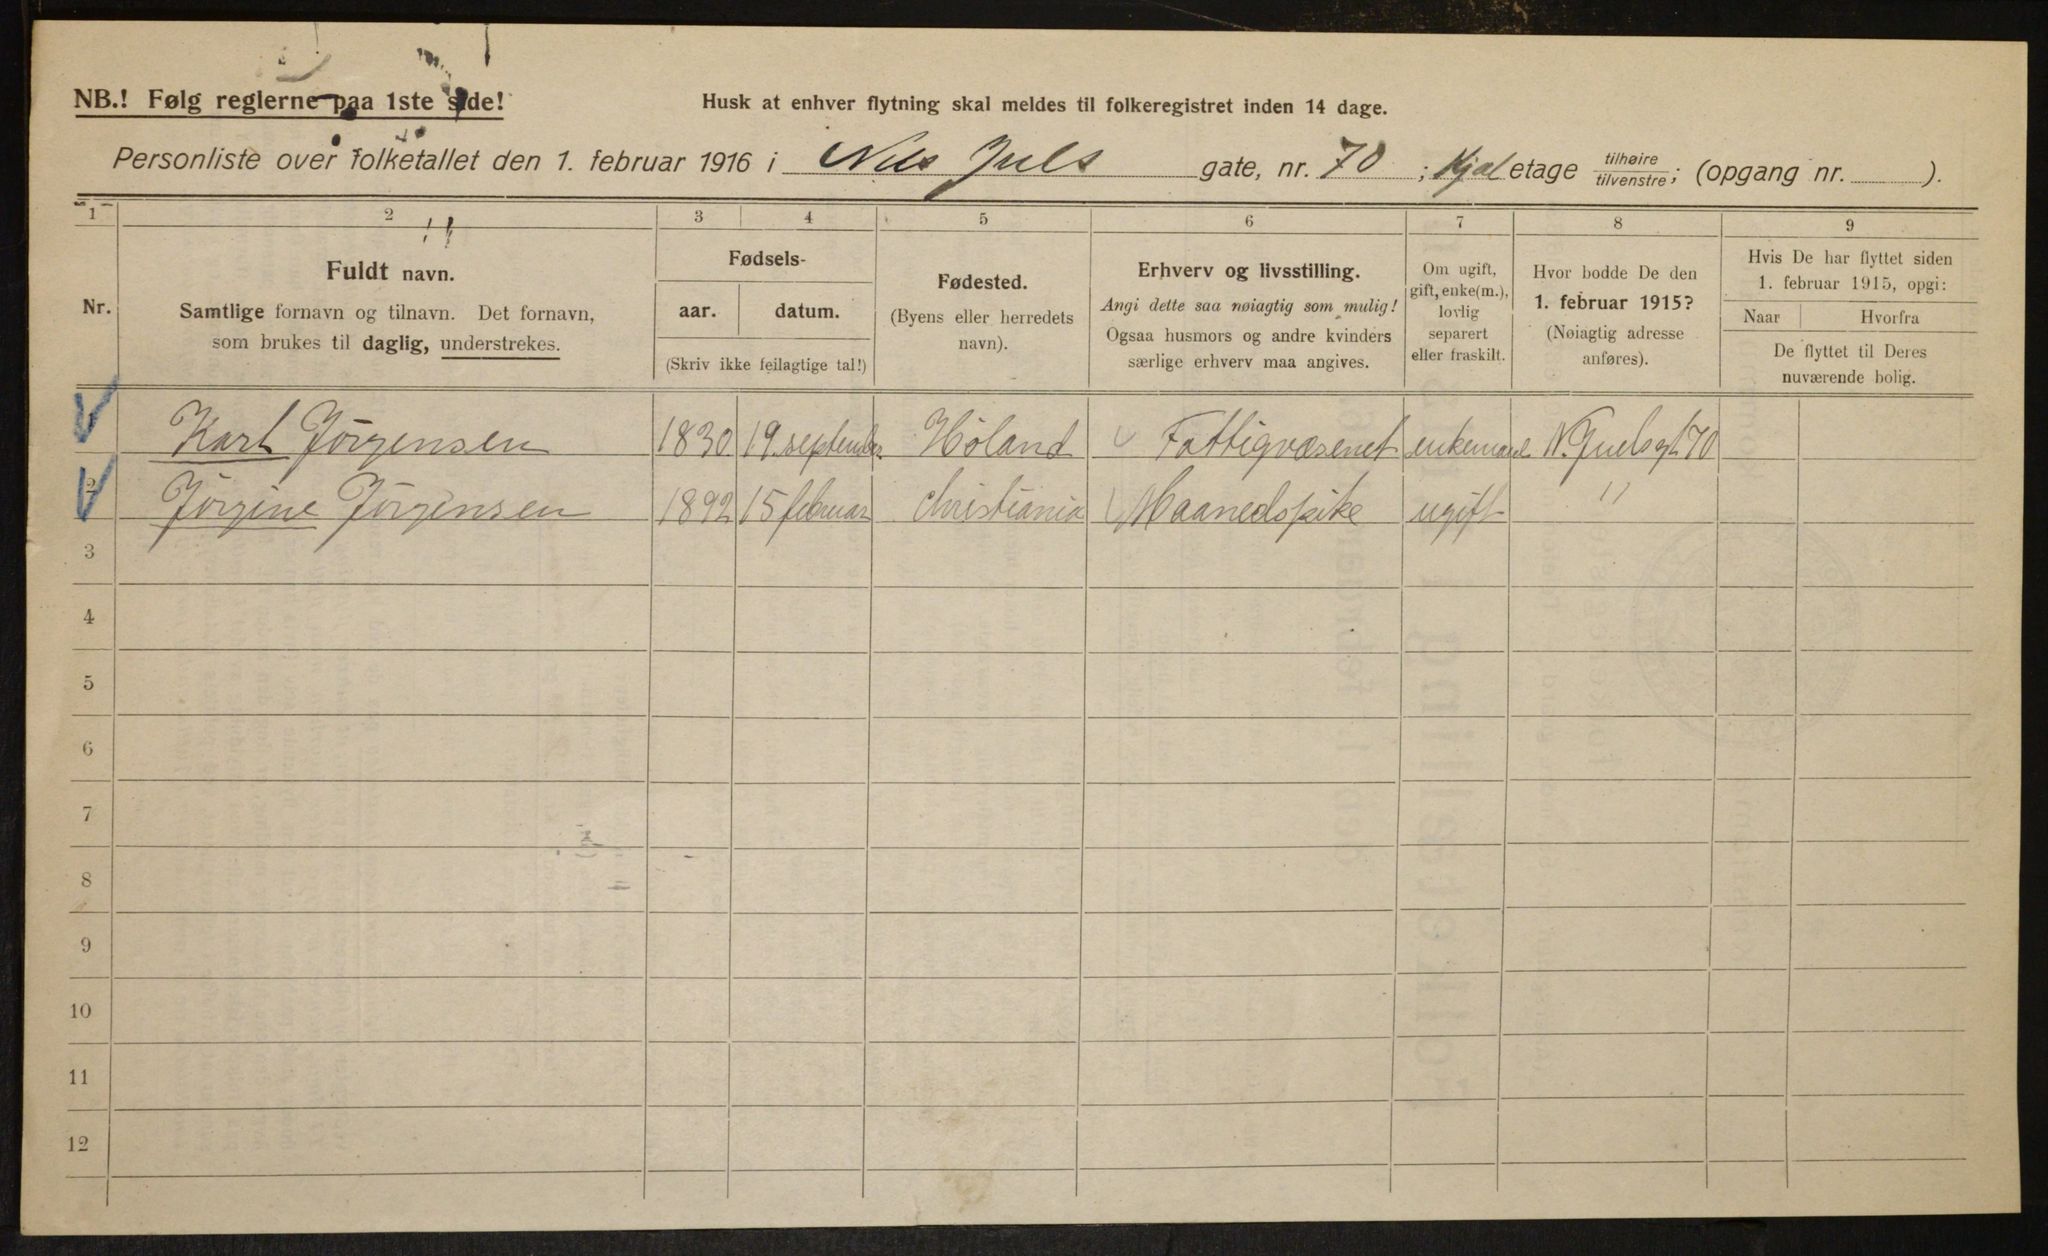 NB.! Følg reglerne paa 1ste side!
Husk at enhver flytning skal meldes til folkeregistret inden 14 dage.
Personliste over folketallet den 1. februar 1916 i Nils Juls gate, nr. 70; Kjæl etage tilhøire tilvenstre; (opgang nr. ).
1 2 3 4 5 6 7 8 9
Nr.
Fuldt navn.
Samtlige fornavn og tilnavn. Det fornavn,
som brukes til daglig, understrekes.
Fødsels-
aar. datum.
(Skriv ikke feilagtige tal!)
Fødested.
(Byens eller herredets
navn).
Erhverv og livsstilling.
Angi dette saa nøiagtig som mulig!
Ogsaa husmors og andre kvinders
særlige erhverv maa angives.
Om ugift,
gift, enke(m.),
lovlig
separert
eller fraskilt.
Hvor bodde De den
1. februar 1915?
(Nøiagtig adresse
anføres).
Hvis De har flyttet siden
1. februar 1915, opgi:
Naar Hvorfra
De flyttet til Deres
nuværende bolig.
Karl Jörgensen 1830 19. september Höland Fattigvæsenet enkemand N. Juelsgt 70
2 Jörgine Jörgensen 1892 15 februar Christiania Maanedspike ugift "
3
4
5
6
7
8
9
10
11
12